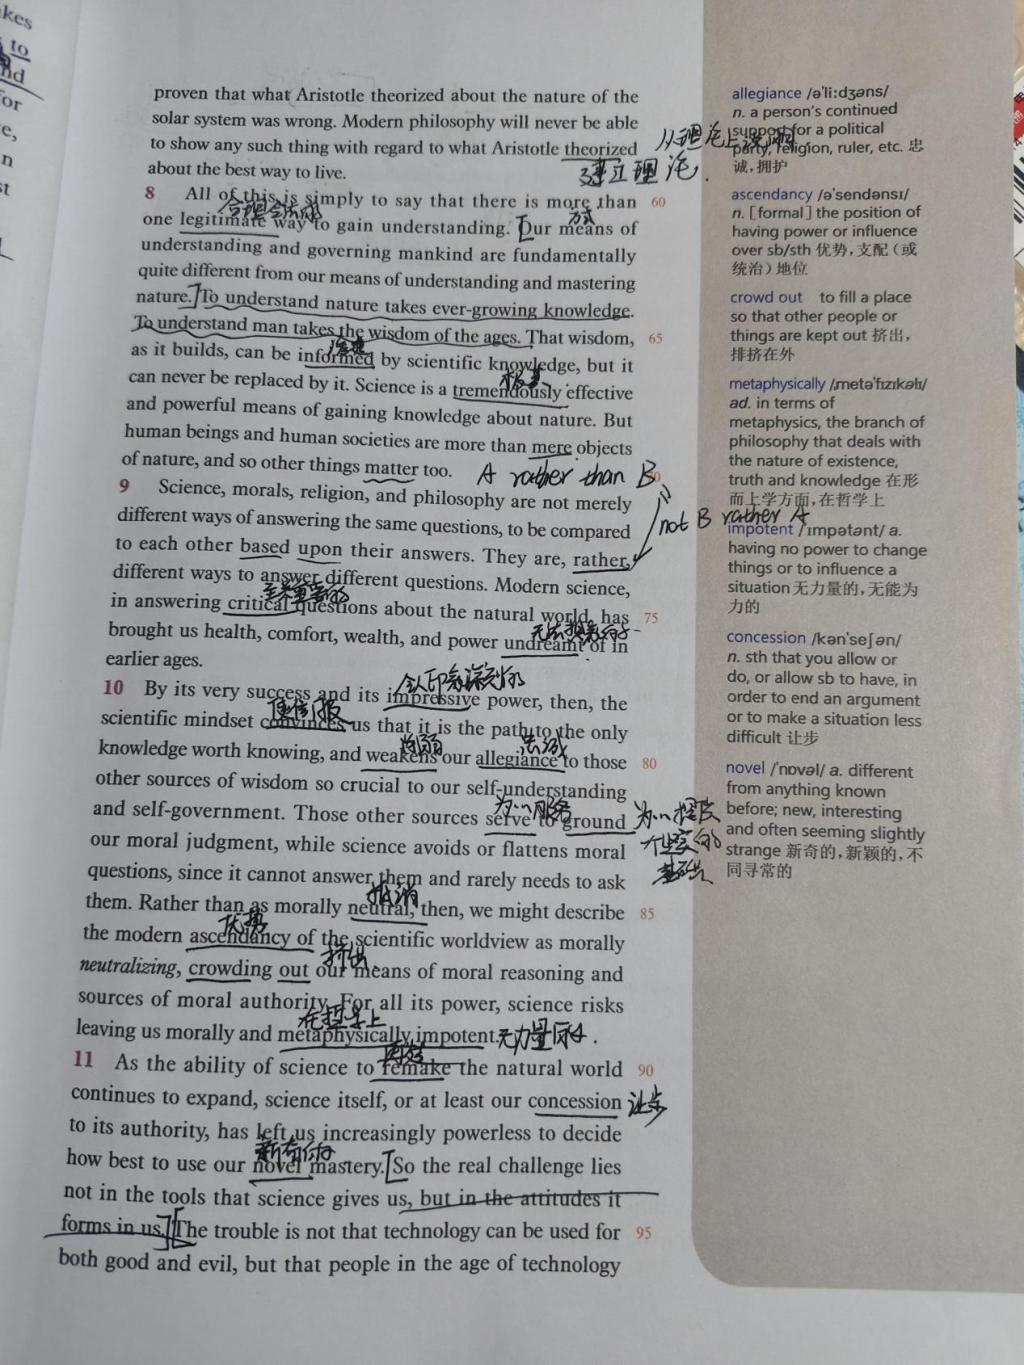 kes
to
nd
for
e,
n
st
proven that what Aristotle theorized about the nature of the
solar system was wrong. Modern philosophy will never be able
to show any such thing with regard to what Aristotle theorized
about the best way to live.
从理论上说明
建立理论.
8 All of this is simply to say that there is more than 60
合理合法的
方式
one legitimate way to gain understanding. [Our means of
understanding and governing mankind are fundamentally
quite different from our means of understanding and mastering
nature.] To understand nature takes ever-growing knowledge.
To understand man takes the wisdom of the ages. That wisdom, 65
as it builds, can be informed by scientific knowledge, but it
极其
can never be replaced by it. Science is a tremendously effective
and powerful means of gaining knowledge about nature. But
human beings and human societies are more than mere objects
of nature, and so other things matter too.
A rather than B
not B rather A
9 Science, morals, religion, and philosophy are not merely
different ways of answering the same questions, to be compared
to each other based upon their answers. They are, rather,
different ways to answer different questions. Modern science,
至关重要的
in answering critical questions about the natural world, has 75
brought us health, comfort, wealth, and power undreamt of in
earlier ages.
令人印象深刻的
10 By its very success and its impressive power, then, the
使信服
scientific mindset convinces us that it is the path to the only
削弱
忠诚
knowledge worth knowing, and weakens our allegiance to those 80
other sources of wisdom so crucial to our self-understanding
为…服务
and self-government. Those other sources serve to ground
为…提供
个坚实的
基础
our moral judgment, while science avoids or flattens moral
questions, since it cannot answer them and rarely needs to ask
抵消
them. Rather than as morally neutral, then, we might describe 85
优势
the modern ascendancy of the scientific worldview as morally
挤出
neutralizing, crowding out our means of moral reasoning and
sources of moral authority. For all its power, science risks
在哲学上
leaving us morally and metaphysically impotent.
11 As the ability of science to remake the natural world 90
continues to expand, science itself, or at least our concession 让步
to its authority, has left us increasingly powerless to decide
新奇的
how best to use our novel mastery. [So the real challenge lies
not in the tools that science gives us, but in the attitudes it
forms in us.] [The trouble is not that technology can be used for 95
both good and evil, but that people in the age of technology
allegiance /ə'li:dʒəns/
n. a person's continued
support for a political
party, religion, ruler, etc. 忠
诚,拥护
ascendancy /ə'sendənsɪ/
n. [formal] the position of
having power or influence
over sb/sth 优势,支配(或
统治)地位
crowd out to fill a place
so that other people or
things are kept out 挤出,
排挤在外
metaphysically /ˌmetə'fɪzɪkəlɪ/
ad. in terms of
metaphysics, the branch of
philosophy that deals with
the nature of existence,
truth and knowledge 在形
而上学方面,在哲学上
impotent /'ɪmpətənt/ a.
having no power to change
things or to influence a
situation 无力量的,无能为
力的
concession /kən'seʃən/
n. sth that you allow or
do, or allow sb to have, in
order to end an argument
or to make a situation less
difficult 让步
novel /'nɒvəl/ a. different
from anything known
before; new, interesting
and often seeming slightly
strange 新奇的,新颖的,不
同寻常的